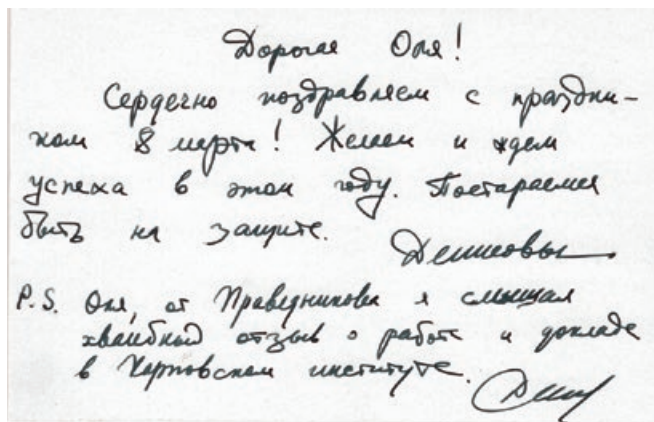 Дорогая Оля!
Сердечно поздравляем с праздни-
ком 8 марта! Желаем и ждем
успеха в этом году. Постараемся
быть на защите.
P.S. Оля, от Праведникова я слышал
хвалебный отзыв о работе и докладе
в Карповском институте.